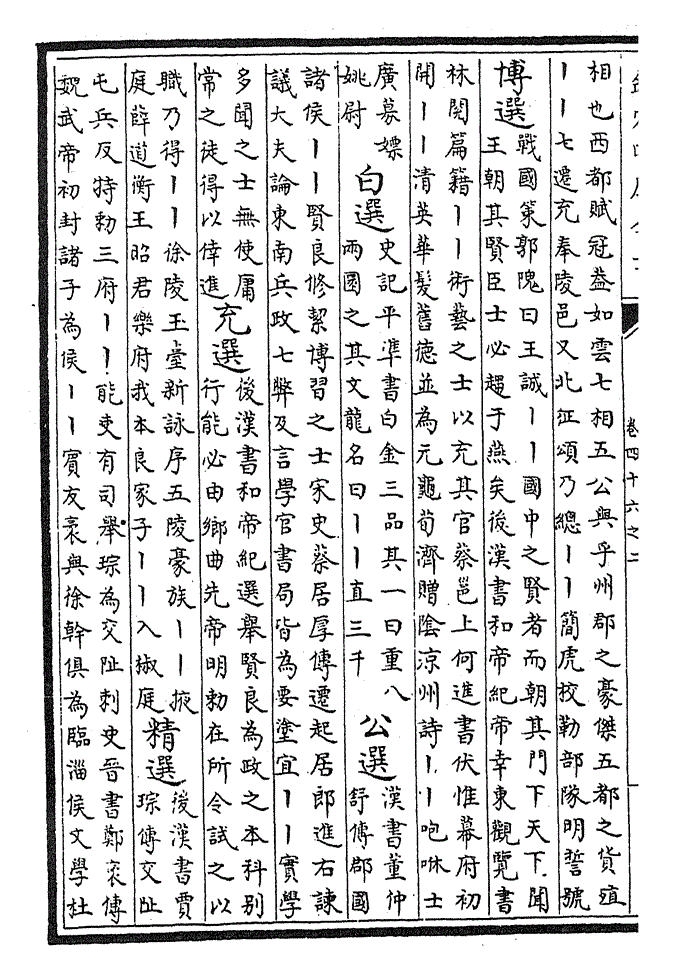 卷四十六之二
相也西都賦冠蓋如雲七相五公與乎州郡之豪傑五都之貨殖
丨丨七遷充奉陵邑又北征頌乃總丨丨簡虎校勒部隊明誓號
博選
戰國策郭隗曰王誠丨丨國中之賢者而朝其門下天下聞
王朝其賢臣士必趨于燕矣後漢書和帝紀帝幸東觀覽書
林閱篇籍丨丨術藝之士以充其官蔡邕上何進書伏惟幕府初
開丨丨清英華髮舊德並為元龜荀濟贈陰涼州詩丨丨咆咻士
廣募嫖
姚尉
白選
史記平準書白金三品其一曰重八
兩圜之其文龍名曰丨丨直三千
公選
漢書董仲
舒傳郡國
諸侯丨丨賢良脩絜博習之士宋史蔡居厚傳遷起居郎進右諫
議大夫論東南兵政七弊及言學官書局皆為要塗宜丨丨實學
多聞之士無使庸
常之徒得以倖進
充選
後漢書和帝紀選舉賢良為政之本科別
行能必由鄉曲先帝明勅在所令試之以
職乃得丨丨徐陵玉臺新詠序五陵豪族丨丨掖
庭薛道衡王昭君樂府我本良家子丨丨入椒庭
精選
後漢書賈
琮傳交阯
屯兵反特勅三府丨丨能吏有司舉琮為交阯刺史晉書鄭袤傳
魏武帝初封諸子為侯丨丨賓友袤與徐幹俱為臨淄侯文學杜